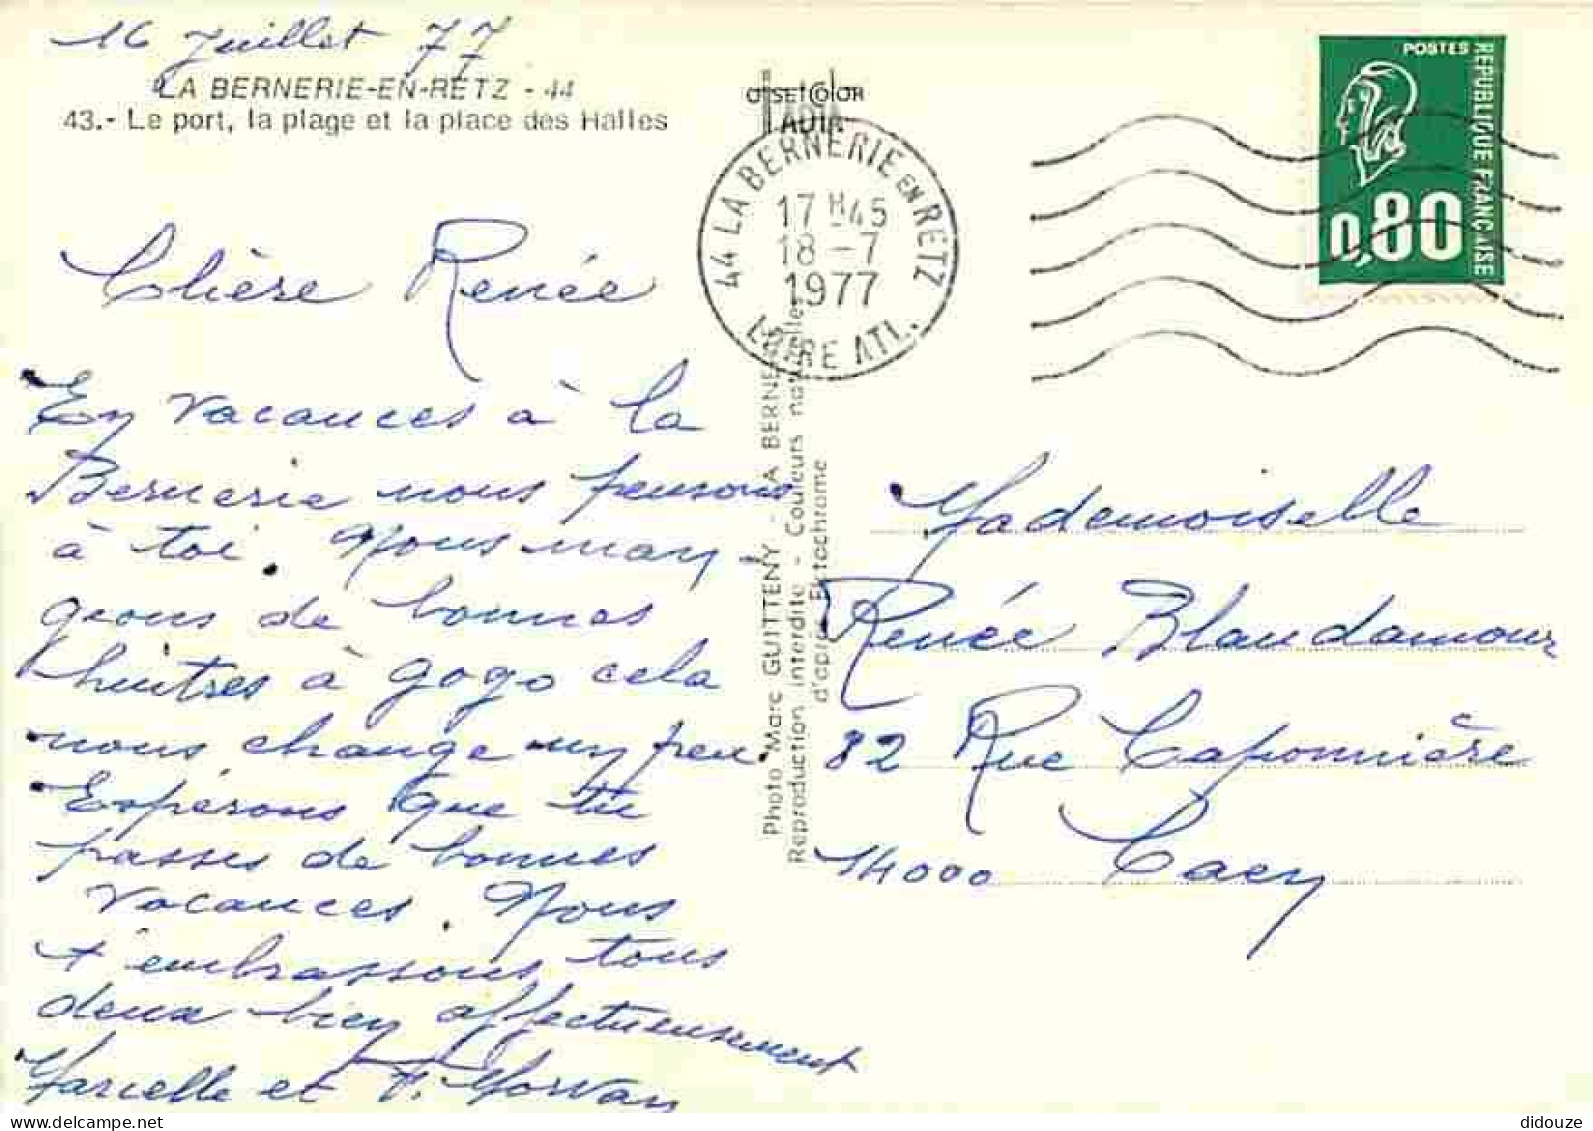 16 Juillet 77
LA BERNERIE-EN-RETZ - 44
43.- Le port, la plage et la place des Halles
Chère Renée
En vacances à la
Bernerie nous pensons
à toi. Nous man
geons de bonnes
huitres à gogo cela
nous change un peu
Espérons que tu
passes de bonnes
vacances. Nous
t'embrassons tous
deux bien affectueusement
Marcelle et M. Morvan
44 LA BERNERIE EN RETZ
17 H45
18 -7
1977
LOIRE ATL.
POSTES
REPUBLIQUE FRANÇAISE
0,80
Photo Marc GUITTENY - LA BERNE
Reproduction interdite - Couleurs naturelles
d'après Ektachrome
Mademoiselle
Renée Blaudamour
82 Rue Caponnière
14000 Caen
didouze